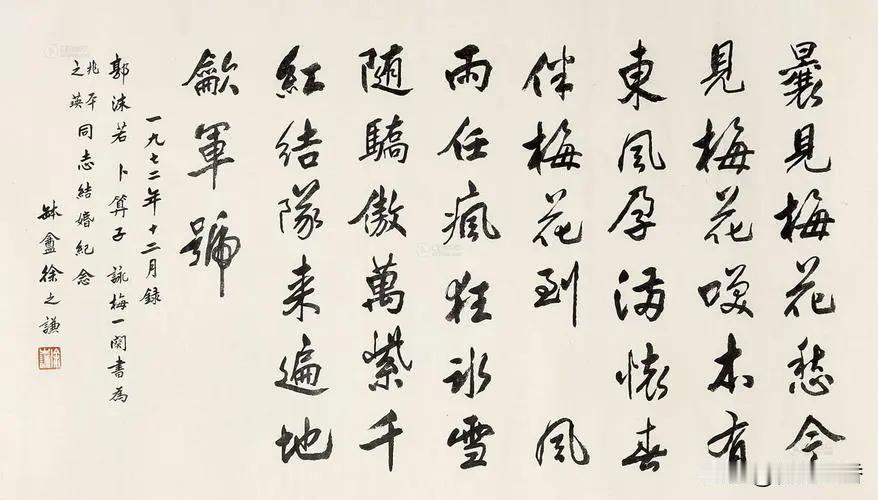 曩見梅花愁今
見梅花唉本有
東風孕滿懷春
伴梅花到 風
雨任瘋狂冰雪
随驕傲萬紫千
紅結隊来遍地
歃軍號
一九七二年十二月録
郭沫若卜算子詠梅一闋書為
兆平
之英同志結婚紀念
缽盦徐之謙